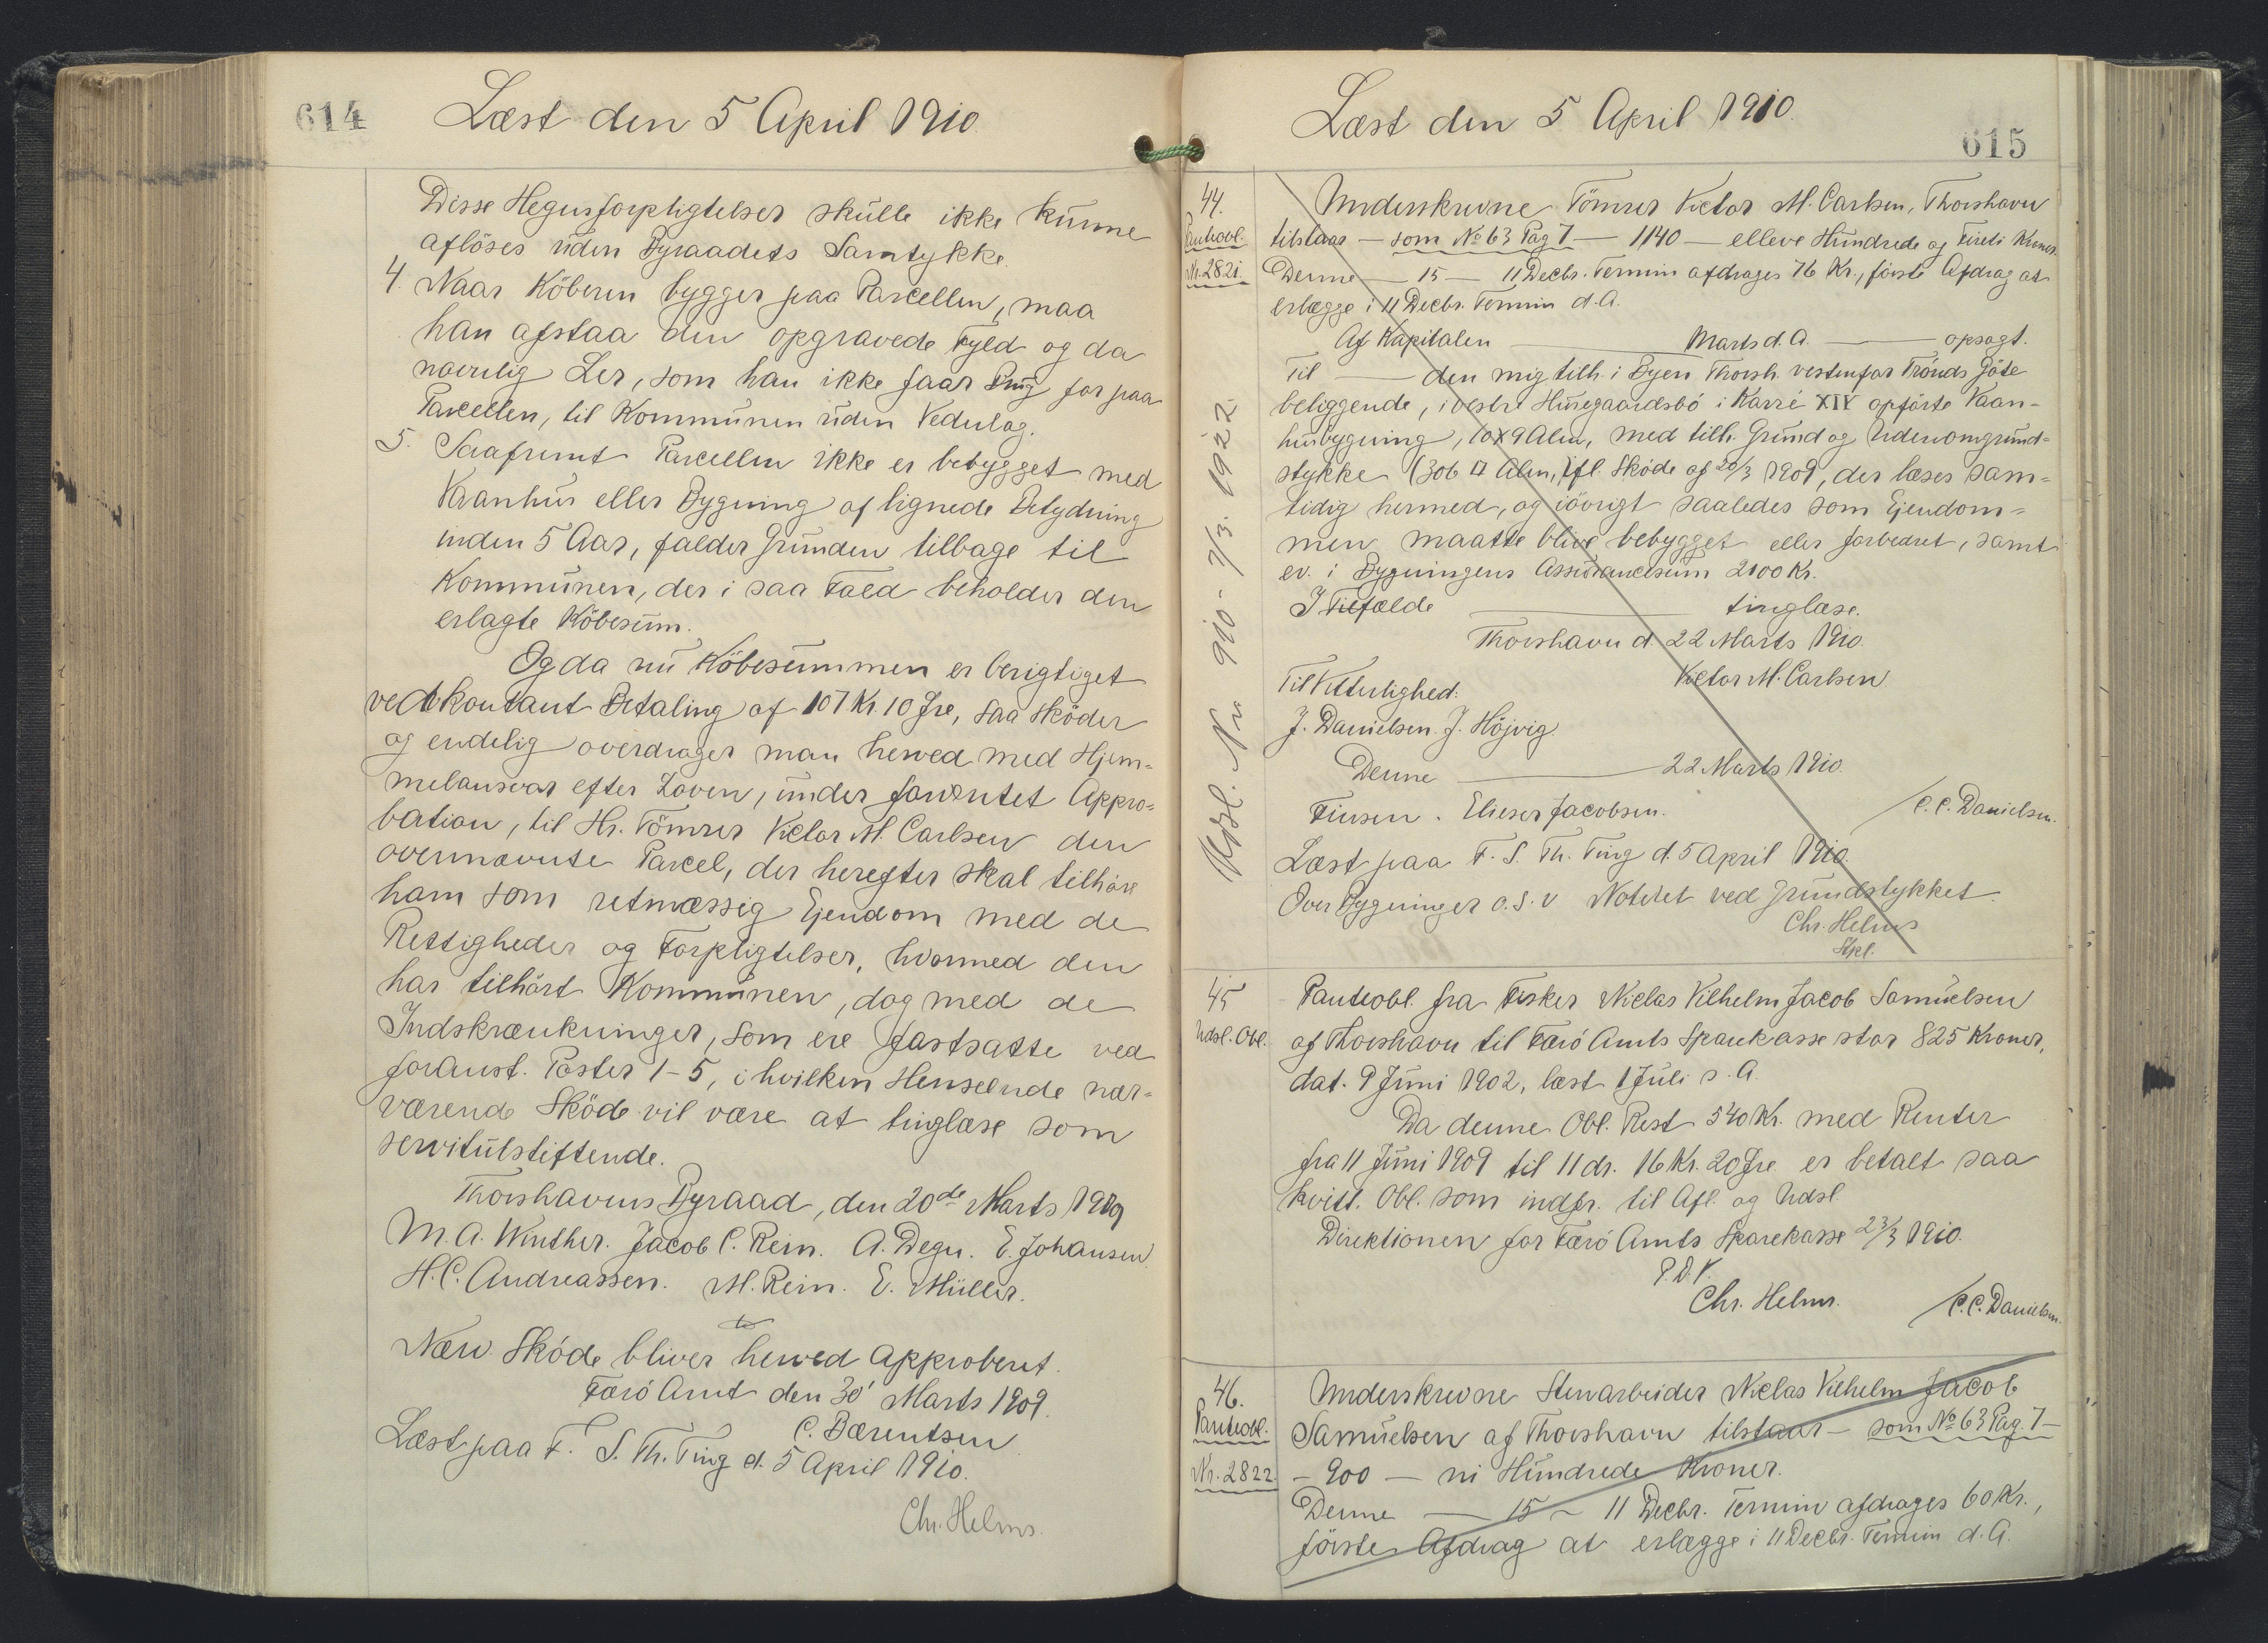 614
Læst den 5 April 1910.
Disse Hegnsforpligtelser skulle ikke kunne
aflöses uden Byraadets Samtykke.
4. Naar Köberen bygger paa Parcellen, maa
han afstaa den opgravede Fyld og da
navnlig Ler, som han ikke faar Brug for paa
Parcellen, til Kommunen uden Vederlag.
5. Saafremt Parcellen ikke er bebygget med
Vaanhus eller Bygning af lignede Betydning
inden 5 Aar, falder Grunden tilbage til
Kommunen, der i saa Fald beholder den
erlagte Köbesum.
Og da nu Köbesummen er berigtiget
ved kontant Betaling af 107 Kr. 10 Øre, saa sköder
og endelig overdrager man herved med Hjem-
melansvar efter Loven, under forventet Appro-
bation, til Hr. Tömrer Victor M. Carlsen den
ovennævnte Parcel, der herefter skal tilhöre
ham som retmæssig Ejendom med de
Rettigheder og Forpligtelser, hvormed den
har tilhört Kommunen, dog med de
Indskrænkninger, som ere fastsatte ved
foranst. Poster 1-5, i hvilken Henseende nær-
værende Sköde vil være at tinglæse som
servitutstiftende.
Thorshavns Byraad, den 20de Marts 1909
M. A. Winther. Jacob C. Rein. A. Degn. E. Johansen
H. C. Andreassen. M. Rein. E. Müller.
Nærv. Sköde bliver herved Approberet.
Færö Amt den 30' Marts 1909.
C. Bærentsen
Læst paa F. S. Th. Ting d. 5 April 1910.
Chr. Helms.
Læst den 5 April 1910.
615
44.
Panteobl.
Nr. 2821.
Underskrevne Tömrer Victor M. Carlsen, Thorshavn
tilstaar — som No 63 Pag 7 — 1140 — elleve Hundrede og Fireti Kroner.
Denne — 15 — 11 Decbr. Termin afdrages 76 Kr., förste Afdrag at
erlægge i 11 Decbr. Termin d. A.
Af Kapitalen — Marts d. A. — opsagt.
Til — den mig tilh. i Byen Thorsh. vestenfor Trónds Göte
beliggende, i vestre Husegaardsbö i Karré XIV opförte Vaan-
husbygning, 10x9 Alen, med tilh. Grund og Udenomgrund-
stykke (306 □ Alen,) ifl. Sköde af 20/3 1909, der læses sam-
tidig hermed, og iövrigt saaledes som Ejendom-
men maatte blive bebygget eller forbedret, samt
ev. i Bygningens Assurancesum 2100 Kr.
I Tilfælde — tinglæse.
Thorshavn d. 22 Marts 1910.
Victor M. Carlsen
Til Vitterlighed:
J. Danielsen. J. Höjvig.
Denne — 22 Marts 1910.
Finsen. Elieser Jacobsen.
/C. C. Danielsen.
Læst paa F. S. Th. Ting d. 5 April 1910.
Over Bygninger o. s. v. Noteret ved Grundstykket.
Chr. Helms
Stpl.
Udsl. Nr. 910 - 7/3. 1922.
45
Udsl. Obl.
Panteobl. fra Fisker Niclas Vilhelm Jacob Samuelsen
af Thorshavn til Færö Amts Sparekasse stor 825 Kroner,
dat. 9 Juni 1902, læst 1 Juli s. A.
Da denne Obl. Rest 540 Kr. med Renter
fra 11 Juni 1909 til 11 ds. 16 Kr. 20 Øre er betalt saa
kvitt. Obl. som indfr. til Afl. og Udsl.
Direktionen for Færö Amts Sparekasse 23/3 1910.
P. D. V.
Chr. Helms.
/C. C. Danielsen.
46.
Panteobl.
Nr. 2822.
Underskrevne Stenarbeider Niclas Vilhelm Jacob
Samuelsen af Thorshavn tilstaar — som No 63 Pag. 7 —
— 900 — ni Hundrede Kroner.
Denne — 15 — 11 Decbr. Termin afdrages 60 Kr.,
förste Afdrag at erlægge i 11 Decbr. Termin d. A.